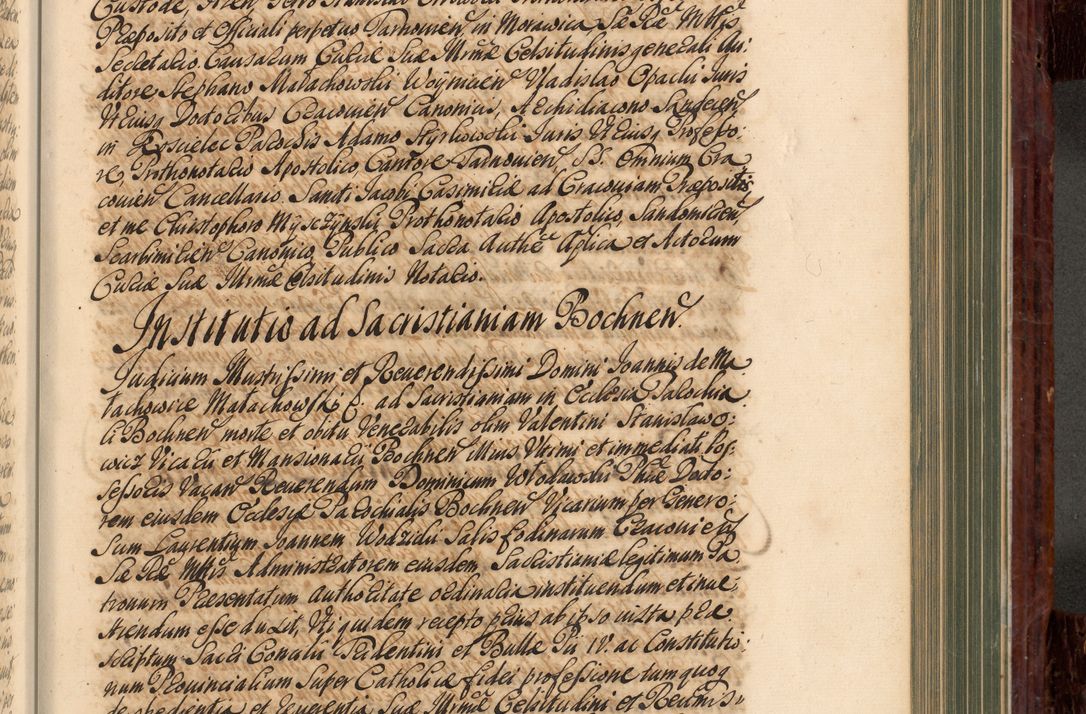 Præposito et Officiali perpetuo Tarnovien̄ in Morawica Sæ Ræ Mttis
Secretario, Causarum Curiæ Suæ Illrmæ Celsitudinis generali Au
ditore, Stephano Małachowski Woynicen̄ Vladislao Opacki Juris
Vtriusq Doctoribus Cracovien̄ Canonicis, Archidiacono Sandecen̄
in Koscielec Parochis Adamo Juris Vtriusq Professo:
re, Prothonotario Apostolico, Cantore Tarnovien̄, S.S. Omnium Cra
covien̄ Cancellario, Sancti Jacobi Casimiriæ ad Cracoviam Præposito
et me Christophoro Mysczynski Prothonotario Apostolico, Sandomirien̄
Scarbimirien̄ Canonico, Publico Sacra Authē Aplica et Actorum
Curiæ Suæ Illrmæ Celsitudinis Notario.
Institutio ad Sacristianiam Bochnen̄.
Judicium Illustrissimi et Reuerendissimi Domini Joannis de Ma
łachowice Małachowski ad Sacristianiam in Ecclesia Parochia
li Bochnen̄ morte et obitu Venerabilis olim Valentini Stanisławo:
wicz Vicarii et Mansionarii Bochnen̄ illius Vltimi et immediati Pos:
sessoris Vacan̄ Reuerendum Dominicum Phiæ Docto:
rem eiusdem Ecclesiæ Parochialis Bochnen̄ Vicarium per Genero:
sum Laurentium Joannem Wodzicki Salis fodinarum Cracouien̄
Sæ Ræ Mttis Administratorem eiusdem Sacristianiæ legitimum Pa
tronum Præsentatum Authoritate ordinaria instituendum et inue:
stiendum esse duxit, Vti quidem recepto prius ab ipso iuxta præ
scriptum Sacri Concilii Tridentini et Bullæ Pii IV. ac Constitutio:
num Prouincialium Super Catholicæ fidei professione tum quoq
de obedientia et reuerentia Suæ Illrmæ Celsitudini et